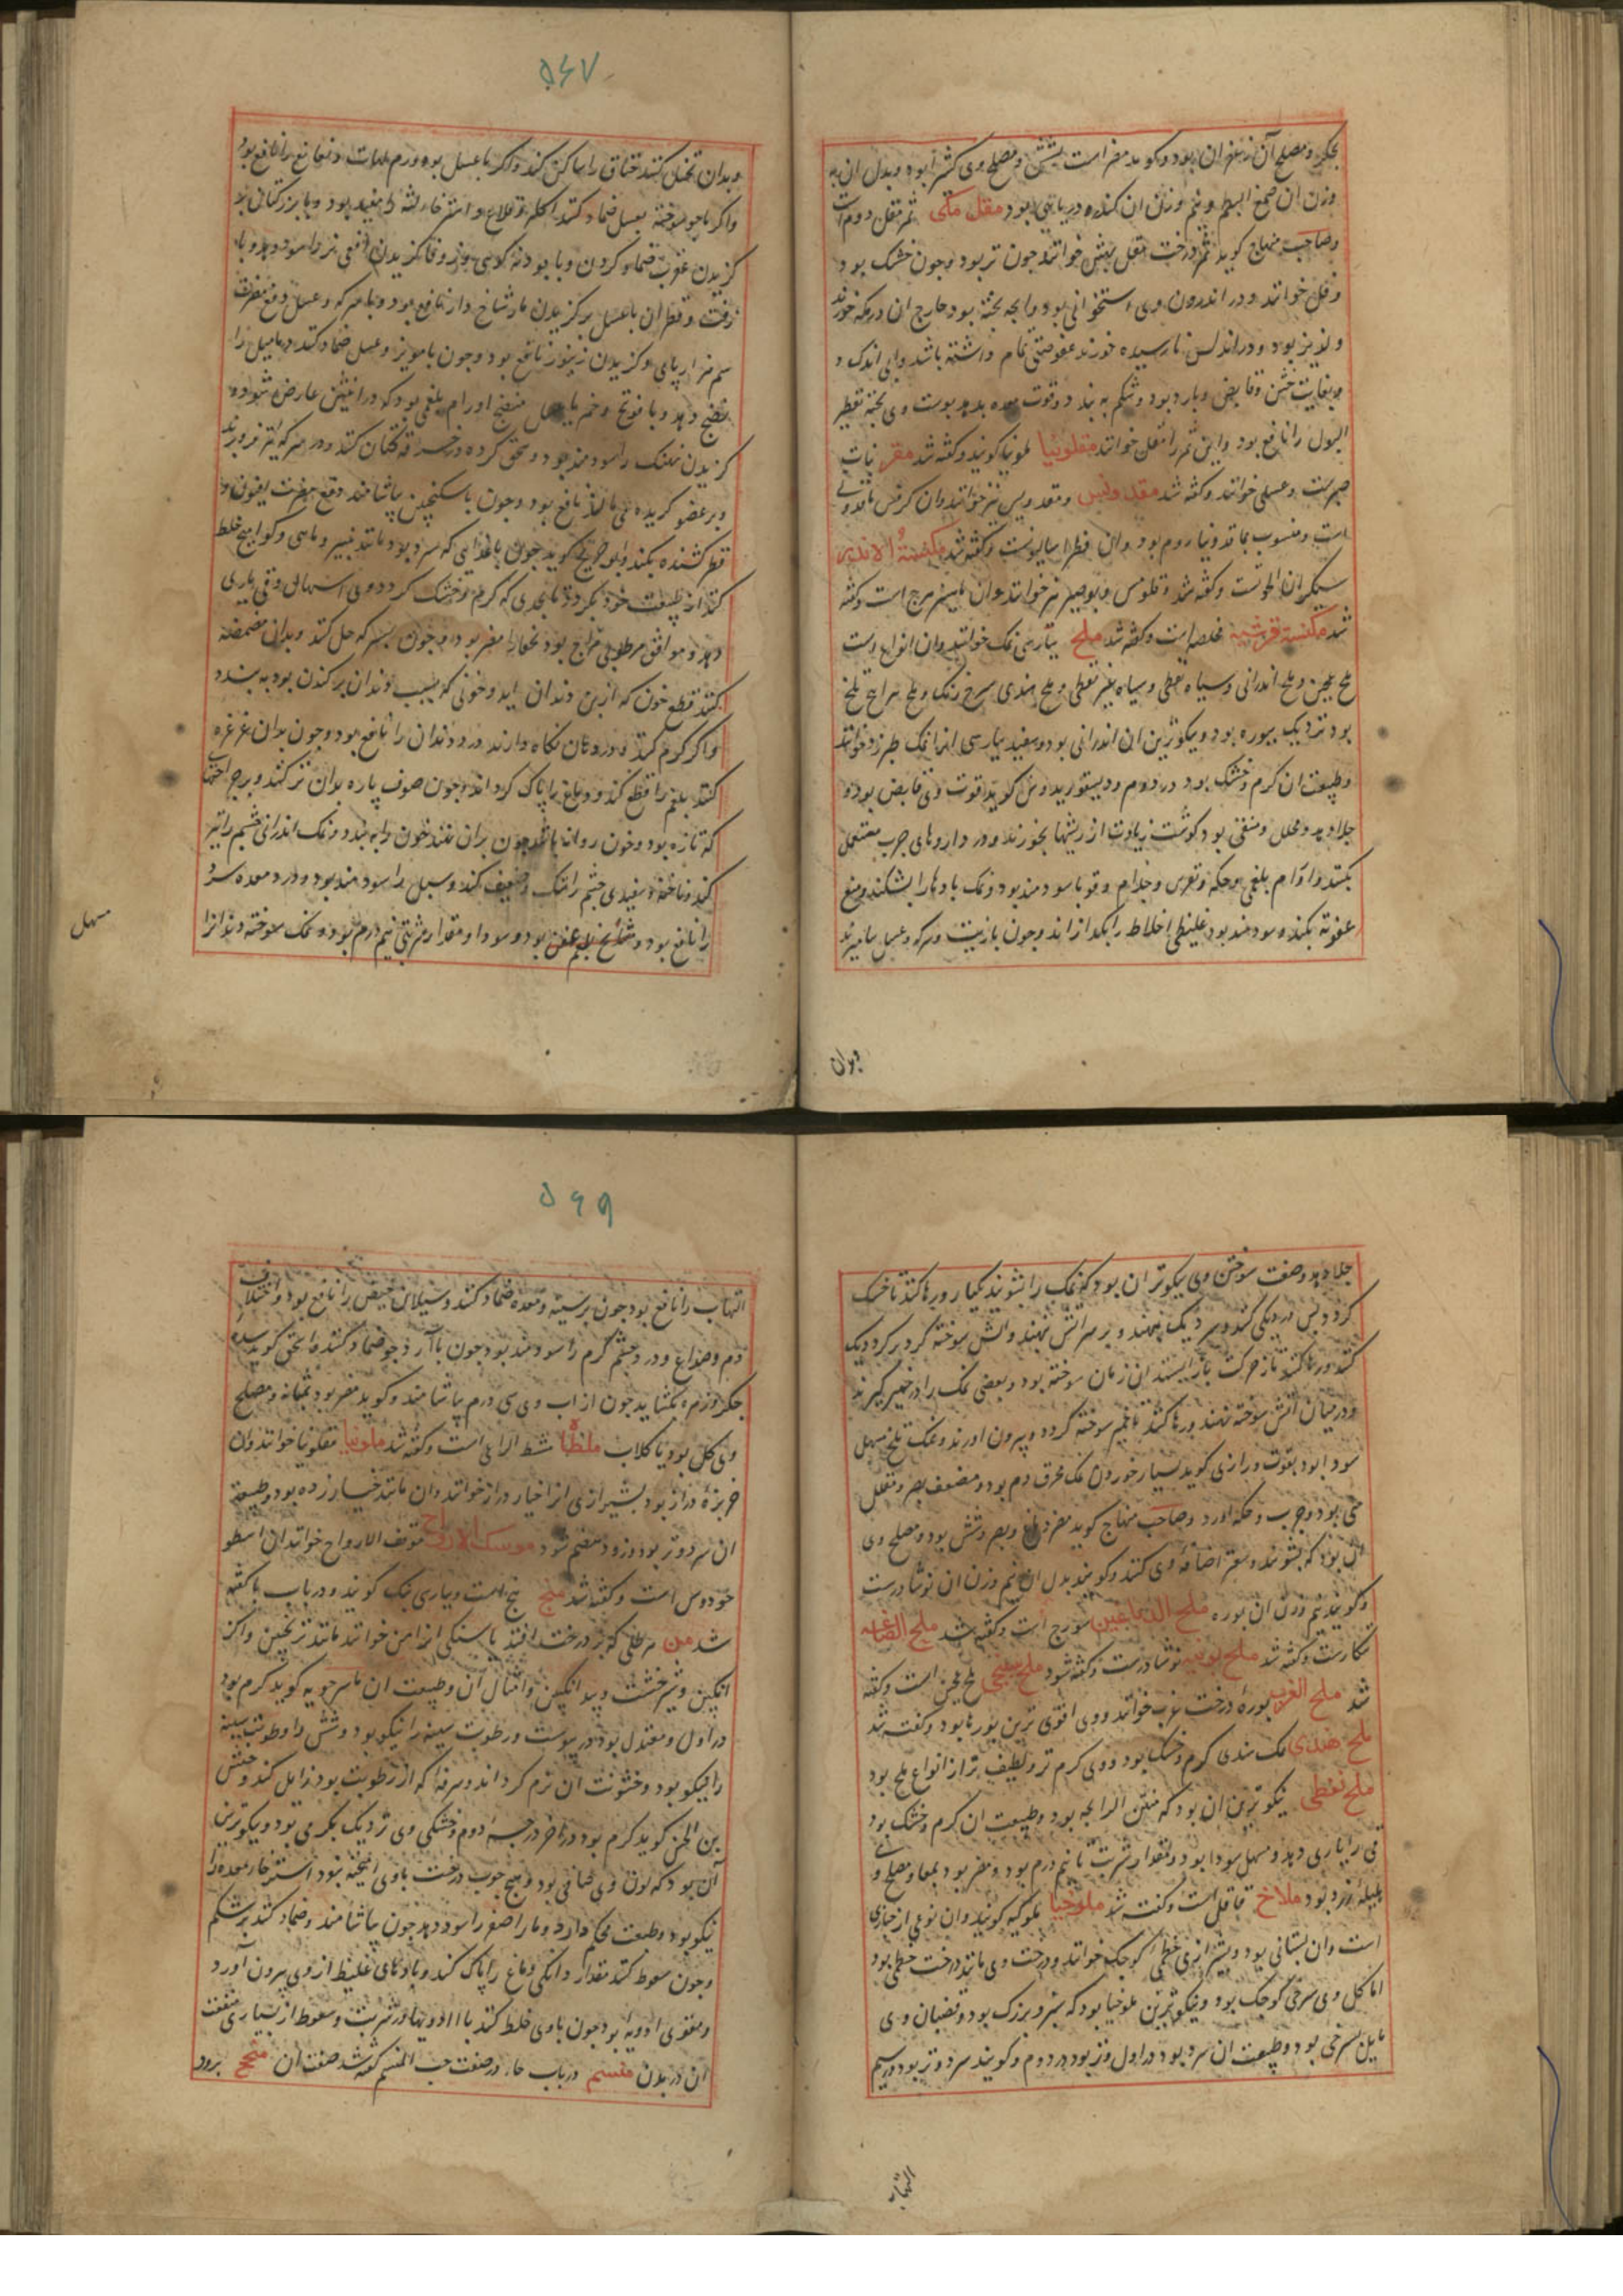 بجگر و مصلح آن زعفران بود و کویند مضر است بشش و مصلح وی کثیرا بود و بدل ان به
وزن ان صمغ البطم و نیم وزن ان کندر دریایی بود مقل مکی ثمر مقل دوم است
وصاحب منهاج کوید ثمر درخت مقل بهش خوانند جون تر بود وجون خشک بود
وقل خوانند و در اندرون وی استخوانی بود و خارج ان در مکه خورند
و لذیذ بود و در اندلس نارسیده خورند عفوصتی تمام داشته باشد و اندک
بغایت خشن و قابض و بارد بود و شکم به بندد و قوت معده بدهد پوست وی پخته تقطیر
البول را نافع بود و این ثمر را مقل خوانند مقلونیا ملونیا کویند و کفته شد مقر نبات
صبرست و عسلی خوانند و کفته شد مقدولیس و مقدویس نیز خوانند وان کرفس ماقدونی
است و منسوب بماقدونیا روم بود وان فطراسالیونست و کفته شد مکنسة الاندر
سیکران الحوتست و کفته شد و قلومس و بوصیر نیز خوانند وان ماهیزهرج است و کفته
شد مکنسة قرشیه مخلصه است و کفته شد ملح بپارسی نمک خوانند وان انواع است
ملح عجین و ملح اندرانی و سیاه نفطی و سیاه غیر نفطی و ملح هندی سرخ رنک و ملح مر اج تلخ
بود نزدیک ببوره بود و نیکوترین ان اندرانی بود و سفید بپارسی انرا نمک طبرزد خوانند
وطبیعت ان کرم و خشک بود در دوم و دیسقوریدوس کوید قوت وی قابض بود و
جلا دهد و محلل و منقی بود کوشت زیادت از ریشها بخورند و در داروهای جرب مستعمل
بکنند و اورام بلغمی و حکه و نقرس و جذام و قوبا سودمند بود و نمک بادها را بشکند و منع
عفونة بکند و سودمند بود غلیظی اخلاط را بکدازاند و جون بازیت و سرکه و عسل بیامیزند
وبدان
۵۶۷
وبدان تحنک کنند خناق را ساکن کند و اکر با عسل بود ورم لهات و نغانغ را نافع بود
واکر باجو سوخته بعسل ضماد کنند اکله و قلاع و استرخاء لثه را مفید بود و با بزر کتان بر
کزیدن عقرب ضماد کردن و با پودنه کوهی و زوفا کزیدن افعی نر را سود دهد و با
زفت و قطران با عسل بر کزیدن مار شاخ دار نافع بود و با سرکه و عسل دفع مضرت
سم هزارپای و کزیدن زنبور نافع بود و جون با مویز و عسل ضماد کنند دمامیل را
نضج دهد و با فوتنج و خمیر با عسل منضج اورام بلغمی بود که در انثیین عارض شود و
کزیدن نهنک را سودمند بود و سحق کرده در خرقه کتان کنند و در سرکه تیز فروبرند
و بر عضو کزیده می مالند نافع بود و جون با سکنجبین بیاشامند دفع مضرت افیون و
فطر کشنده بکند و ابو جریح کوید جون با غذایی که سرد بود مانند پنیر و ماهی و کوامیخ خلط
کنند از طبیعت خود بکردد تا بحدی که کرم و خشک کردد وی اسهال و قی یاری
دهد و موافق مرطوبی مزاج بود نحفا را مضر بود و جون بسرکه حل کنند و بدان مضمضه
کنند قطع خون که از بن دندان اید و خونی که بسبب دندان برکندن بود به بندد
واکر کرم کنند و در دهان نکاه دارند درد دندان را نافع بود و جون بدان غرغره
کنند بلغم را قطع کند و دماغ را پاک کرداند و جون صوف پاره بدان تر کنند و بر جراحتها
که تازه بود و خون روانه باشد جون بران نهند خون را به بندد و نمک اندرانی چشم را تیز
کند و ناخنه و سفیدی چشم را تنک و ضعیف کند و سبل را سودمند بود و درد معده سرد
را نافع بود و مسهل بلغم عفن بود و سودا و مقدار شربتی نیم درم بود و نمک سوخته دندانرا
مسهل
جلا دهد و صفت سوختن وی نیکوتر ان بود که نمک را بشویند یکبار و رها کنند تا خشک
کردد پس در دیکی کنند و سر دیک بنهند و بر سر اتش نهند و اتش سوخته کرد بر کرد دیک
کنند و رها کنند تا از حرکت بازایستد ان زمان سوخته بود و بعضی نمک را در خمیر کیرند
و در میان اتش سوخته نهند و رها کنند تا خمیر سوخته کردد و بیرون اورند و نمک تلخ مسهل
سودا بود بقوت و رازی کوید بسیار خوردن نمک محرق دم بود و مضعف بصر و مقلل
منی بود و جرب و حکه اورد و صاحب منهاج کوید مضر دماغ و بصر و شش بود و مصلح وی
ان بود که بشویند و سعتر اضافه وی کنند و کویند بدل ان نیم وزن ان نوشادرست
و کویند نیم وزن ان بوره ملح الدباغین سورج است و کفته شد ملح الصاغه
تنکارست و کفته شد ملح بوتیه نوشادرست و کفته شود ملح سبخی ملح عجین است و کفته
شد ملح الغرب بوره درخت غرب خوانند و وی اقوی ترین بورها بود و کفته شد
ملح هندی نمک هندی کرم و خشک بود و وی کرم تر و لطیف تر از انواع ملح بود
ملح نفطی نیکوترین ان بود که منتن الرایحه بود و طبیعت ان کرم و خشک بود
قی را یاری دهد و مسهل سودا بود و مقدار شربت تا نیم درم بود و مضر بود بمعا و مصلح وی
هلیله زرد بود ملاخ قاقلی است و کفته شد ملوخیا ملوکیه کویند وان نوعی از خبازی
است وان بستانی بود و بشیرازی خطمی کوچک خوانند و درخت وی مانند درخت خطمی بود
اما کل وی سرخی کوچک بود و نیکوترین ملوخیا بود که سبز و بزرک بود و قضبان وی
مایل بسرخی بود و طبیعت ان سرد بود در اول و تر بود در دوم و کویند سرد و تر بود در سیم
التهاب
۵۶۹
التهاب را نافع بود جون بر سینه و معده ضماد کنند و سیلان حیض را نافع بود و اختلاف
دم و صداع و درد چشم کرم را سودمند بود جون با آرد جو ضماد کنند و اسحق کوید سده
جکر و زهره بکشاید جون از اب وی سی درم بیاشامند و کوید مضر بود بمثانه و مصلح
وی کل بود یا کلاب ملطاة مشط الراعی است و کفته شد ملونیا مقلونیا خوانند وان
خربزه دراز بود بشیرازی انرا خیار دراز خوانند وان مانند خیار زده بود و طبیعت
ان سرد و تر بود و زود هضم شود موسک الارواح موقف الارواح خوانند ان اسطو
خودوس است و کفته شد منج بنج است و بپارسی بنک کویند و در باب با کفته
شد من هر طلی که بر درخت افتد یا سنکی انرا من خوانند مانند ترنجبین و کز
انکبین و شیرخشت و بید انکبین و امثال ان و طبیعت ان ماسرجویه کوید کرم بود
در اول و معتدل بود در یبوست و رطوبت سینه را نیکو بود و شش و رطوبت سینه
را نیکو بود و خشونت ان نرم کرداند و سرفه که از رطوبت بود زایل کند و حبیش
بن الحسن کوید کرم بود در اخر درجه دوم و خشکی وی نزدیک بکرمی بود و نیکوترین
آن بود که لون وی صافی بود و هیچ چوب درخت باوی امیخته نبود استرخاء معده را
نیکو بود و طبیعت محکم دارد و ماء اصفر را سود دهد جون بیاشامند و ضماد کنند بر شکم
وجون سعوط کنند مقدار دانکی دماغ را پاک کند و بادهای غلیظ از وی بیرون آورد
و مقوی ادویه بود جون باوی خلط کنند با ادویها در شربت و سعوط از بسیاری منفعت
ان در بدن منسم در باب حا در صفت حب المنسم کفته شد صفت ان منجح بزرد